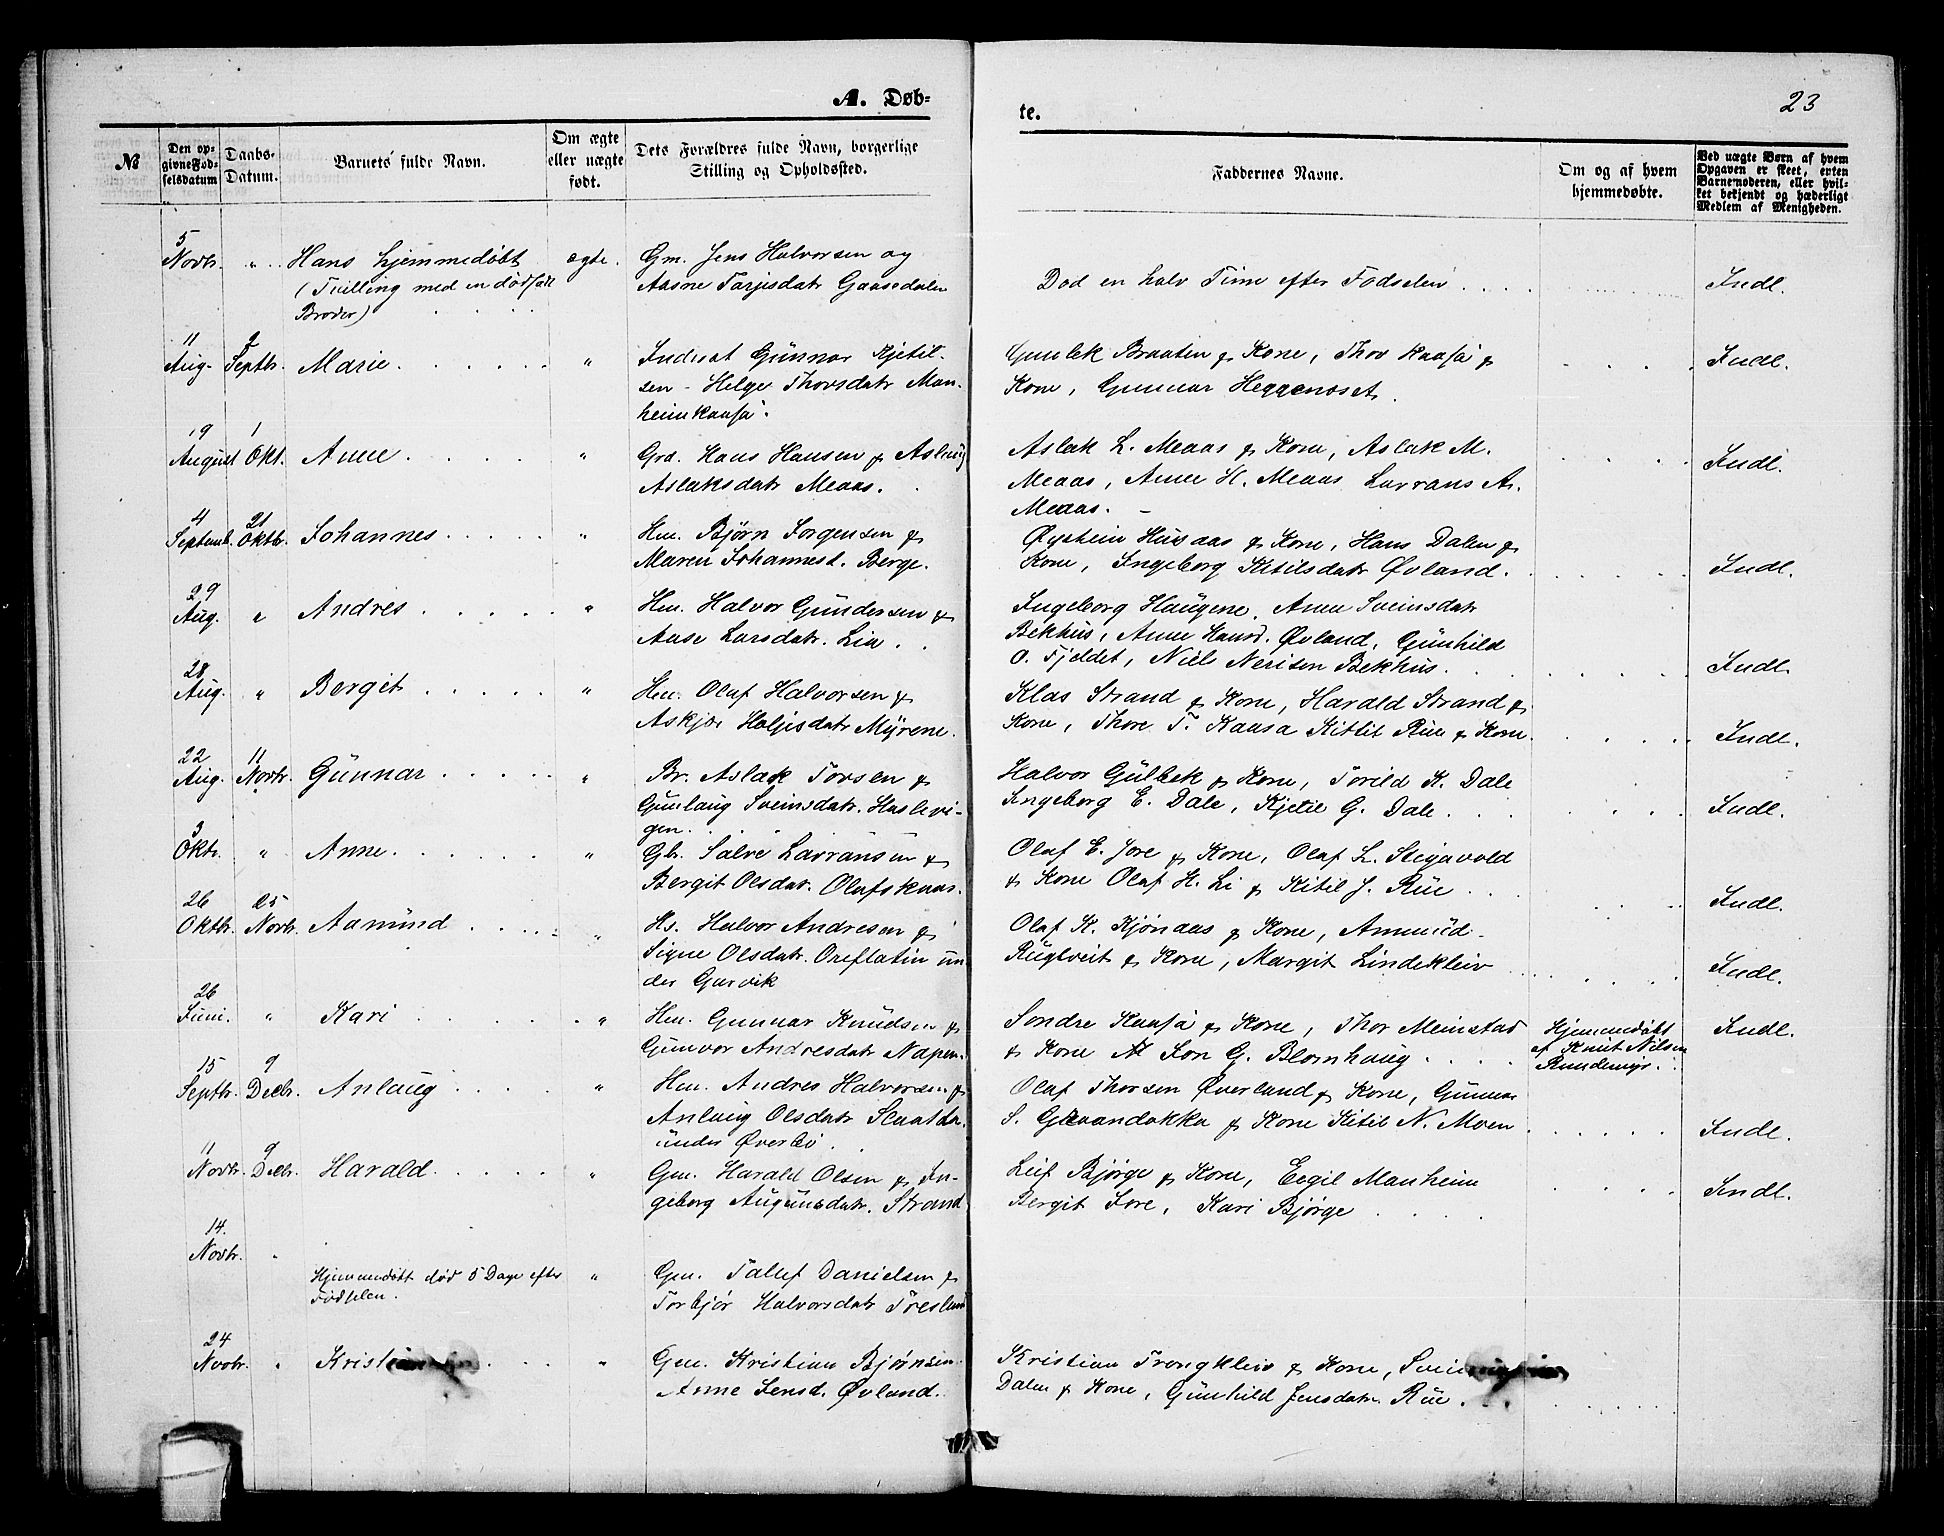 A. Døb-
te.
23
№
Den op-
givne Fød-
selsdatum
Daabs-
Datum.
Barnets fulde Navn.
Om ægte
eller uægte
født.
Dets Forældres fulde Navn, borgerlige
Stilling og Opholdssted.
Faddernes Navne.
Om og af hvem
hjemmedøbte.
Ved uægte Børn af hvem
Opgaven er skeet, enten
Barnemoderen, eller hvil-
ket bekjendt og hæderligt
Medlem af Menigheden.
5
Novbr. " Hans hjemmedøbt ægte. Gm. Jens Halvorsen og
(Tvilling med en dødfødt Aasne Tarjisdatr Gaasedalen
Broder)
Død en halv Time efter Fødselen Indl.
11 9
Aug. Septbr. Marie " Inderst Gunnar Kjetil-
sen - Helge Thorsdatr Man-
heimkaasa.
Gunlek Braaten & Kone, Thor Kaasa &
Kone, Gunnar Heggenoset. Indl.
19 1
August Okt. Anne " Grd. Hans Hansen & Aslaug
Aslaksdatr Meaas.
Aslak L. Meaas & Kone, Aslak M.
Meaas, Anne H. Meaas Lavrans A.
Meaas. - Indl.
4 21
Septemb. Oktbr. Johannes " Hm. Bjørn Jørgensen &
Maren Johannesd. Berge.
Øystein Husaas & Kone, Hans Dalen &
Kone, Ingeborg Kitilsdatr Øvland. Indl.
29
Aug. " Andres " Hm. Halvor Gundersen &
Aase Larsdatr. Lia.
Ingeborg Haugene, Anne Sveinsdatr
Bekhus, Anne Hansd. Øvland, Gunhild
O. Fjeldet, Niels Nerisen Bekhus. Indl.
28
Aug. " Bergit " Hm. Olaf Halvorsen &
Askjær Holjisdatr Myrene.
Klas Strand & Kone, Harald Strand &
Kone, Thore T. Kaasa Kittil Rue & Kone. Indl.
22 11
Aug. Novbr. Gunnar " Br. Aslak Torsen &
Gunlaug Sveinsdatr. Haslevi-
gen.
Halvor Gulbek & Kone, Torild K. Dale
Ingeborg E. Dale, Kjetil G. Dale. Indl.
3
Oktr. " Anne " Gbr. Salve Lavransen &
Bergit Olsdatr. Olafskaas.
Olaf E. Jore & Kone, Olaf L. Stigavold
& Kone Olaf H. Li & Kitil J. Rue Indl.
26 25
Oktbr. Novbr. Aamund " Hs. Halvor Andresen &
Signe Olsdatr. Oreflatin un-
der Garvik
Olaf K. Kjønaas & Kone, Ammund
Rugtveit & Kone, Margit Lindekleiv Indl.
26
Juni. " Kari " Hm. Gunnar Knudsen &
Gunvor Andresdatr Napen.
Sondre Kaasa & Kone, Thor Meinstad
& Kone Jon G. Blomhaug
Hjemmedøbt
af Knut Nilsen
Rundemyr. Indl.
15 9
Septbr. Decbr. Anlaug " Hm. Andres Halvorsen &
Anlaug Olsdatr Slaatta
under Øverbø.
Olaf Thorsen Øverland & Kone, Gunnar
S. Gravandokka & Kone Kitil N. Moen Indl.
11 9
Novbr. Decbr. Harald " Gm. Harald Olsen & In-
geborg Augunsdatr. Strand
Leif Bjørge & Kone, Eegil Manheim
Bergit Jore, Kari Bjørge Indl.
14.
Novbr. "
Hjemmedøbt død 5 Dage efter "
Fødselen.
Gm. Tallef Danielsen &
Torbjør Halvorsdatr Treslund
24
Novbr. " Kristian " Gm. Kristian Bjørnsen.
Anne Jensd. Øvland.
Kristian Trongkleiv & Kone, Svein
Dalen & Kone, Gunhild Jensdatr. Rue.